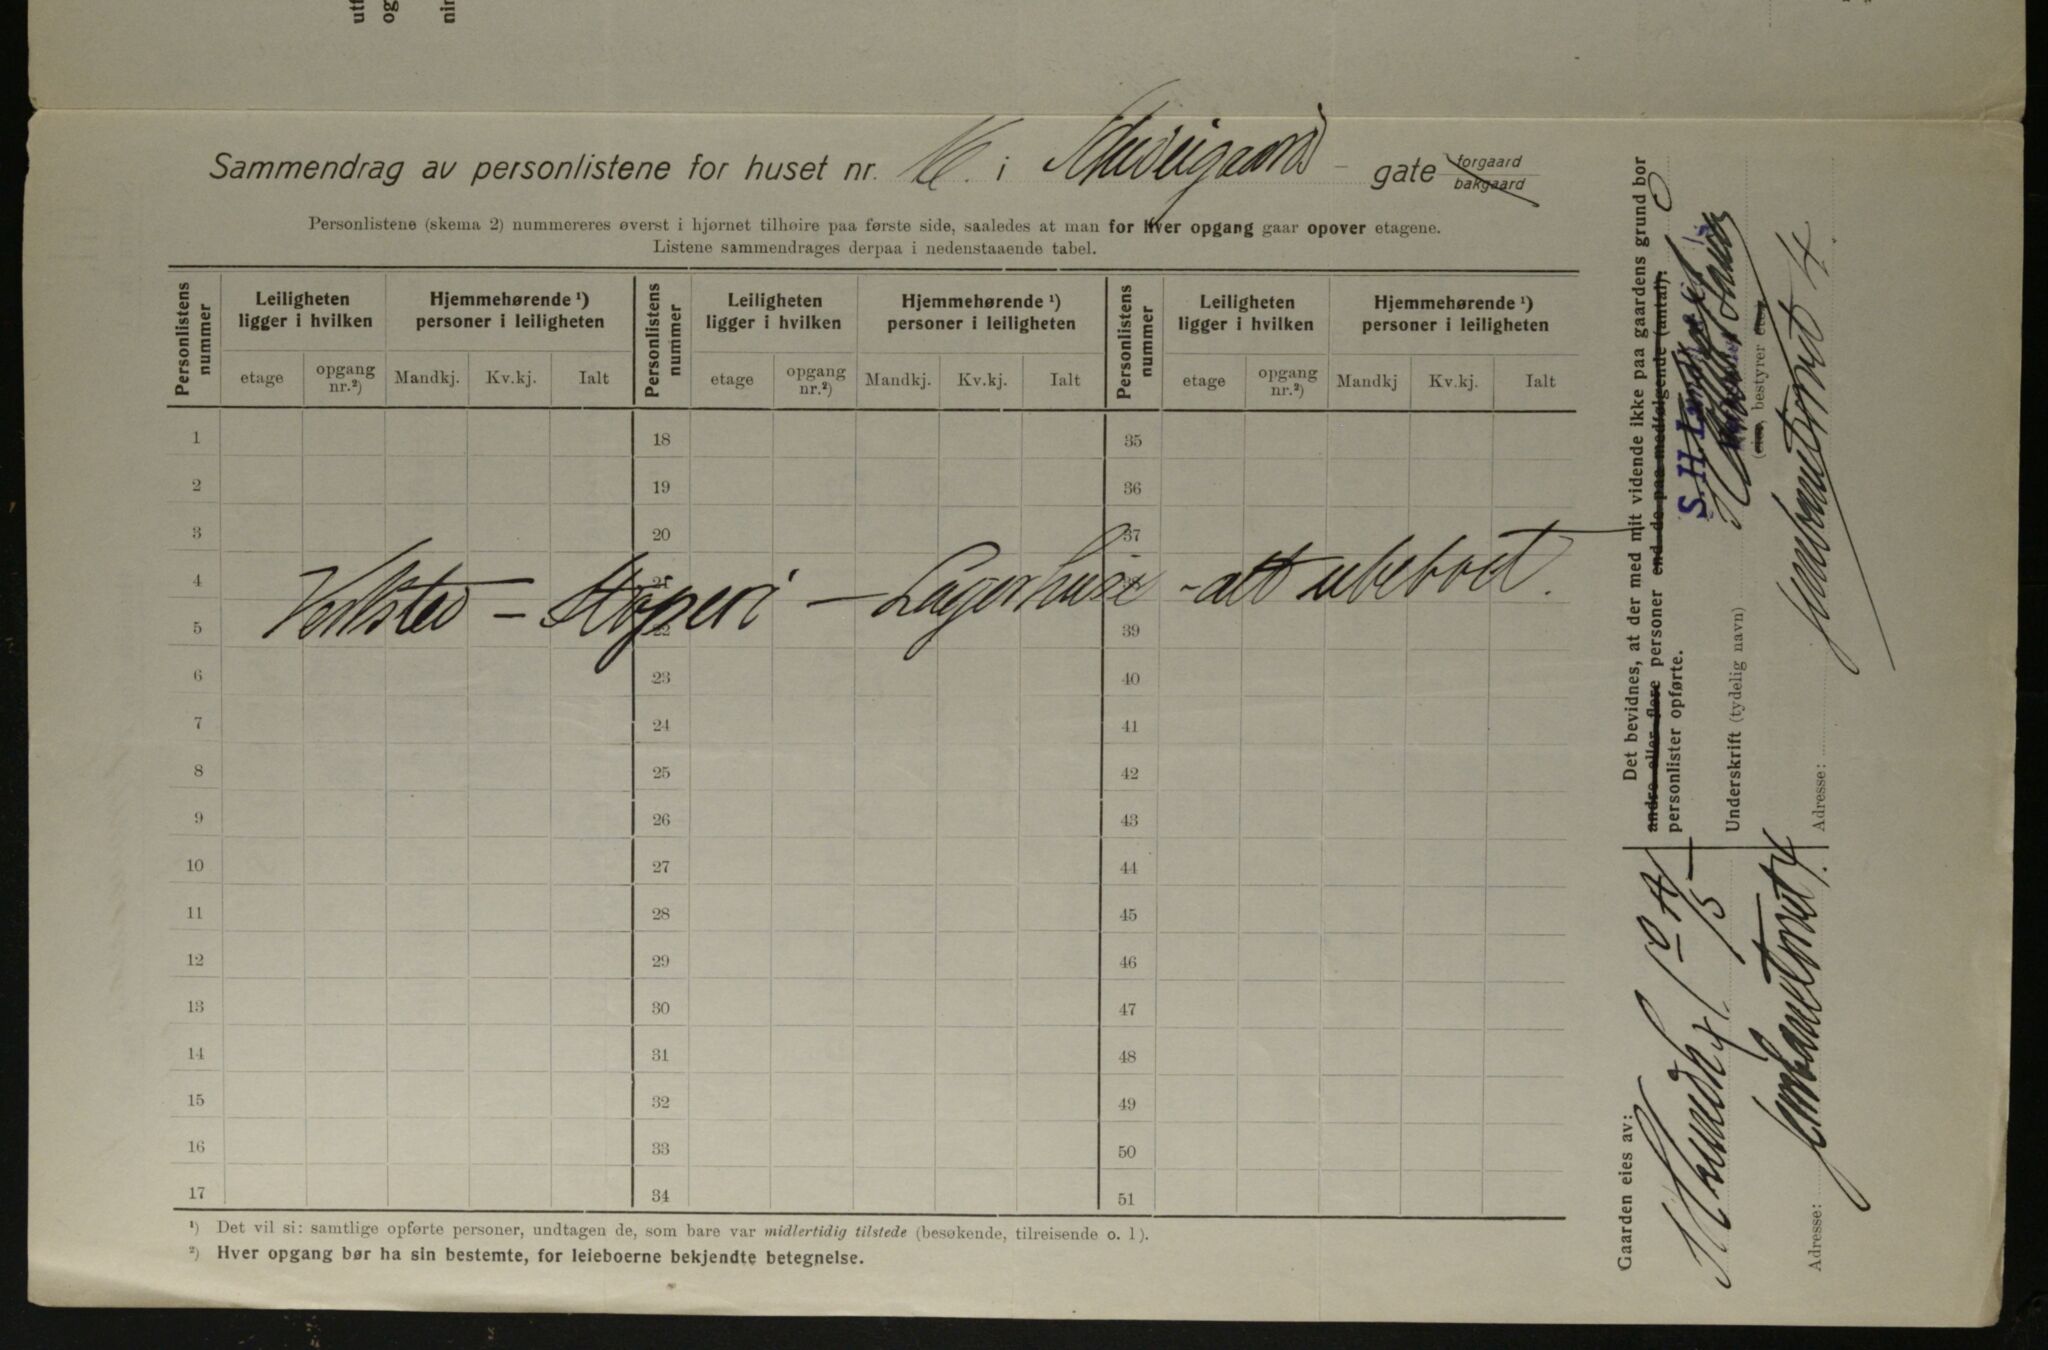 utf
og
nin
Sammendrag av personlistene for huset nr. 16. i Schweigaards gate forgaard bakgaard
Personlistene (skema 2) nummereres øverst i hjørnet tilhøire paa første side, saaledes at man for hver opgang gaar opover etagene.
Listene sammendrages derpaa i nedenstaaende tabel.
Personlistens nummer Leiligheten ligger i hvilken Hjemmehørende ¹) personer i leiligheten Personlistens nummer Leiligheten ligger i hvilken Hjemmehørende ¹) personer i leiligheten Personlistens nummer Leiligheten ligger i hvilken Hjemmehørende ¹) personer i leiligheten
etage opgang nr.²) Mandkj. Kv.kj. Ialt etage opgang nr.²) Mandkj. Kv.kj. Ialt etage opgang nr.²) Mandkj Kv.kj. Ialt
1 18 35
2 19 36
3 20 37
4 21
5 22 39
Verksted – Støperi – Lagerhuse - alt ubeboet.
6 23 40
7 24 41
8 25 42
9 26 43
10 27 44
11 28 45
12 29 46
13 30 47
14 31 48
15 32 49
16 33 50
17 34 51
¹) Det vil si: samtlige opførte personer, undtagen de, som bare var midlertidig tilstede (besøkende, tilreisende o. l).
²) Hver opgang bør ha sin bestemte, for leieboerne bekjendte betegnelse.
Gaarden eies av:
Adresse: Jernbanetorvet 4.
Det bevidnes, at der med mit vidende ikke paa gaardens grund bor
andre eller flere personer end de paa medfølgende (antal):
personlister opførte.
S. H. Lundh
Underskrift (tydelig navn)
(eier, bestyrer
Adresse: Jernbanetorvet 4